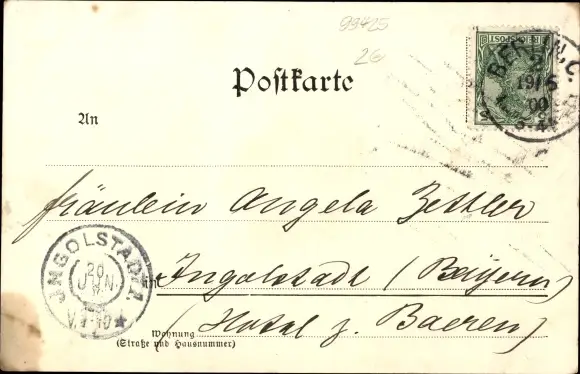 99425
26
REICHSPOST
BERLIN, C.
2
19/6
00
Postkarte
An
Fräulein Angela Zettler
in Ingolstadt (Bayern)
(Hotel z. Baeren)
Wohnung
(Straße und Hausnummer)
INGOLSTADT I
20
JUN.
V.9-10